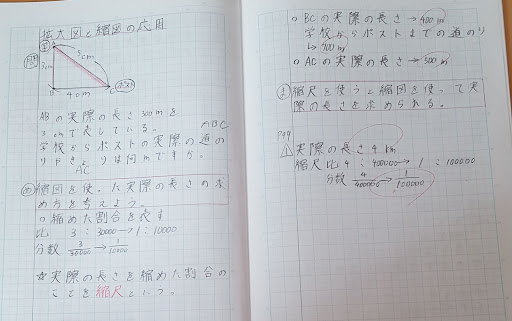 拡大図と縮図の応用
問
学
A
5cm
3cm
B
4cm
C
ポスト
ABの実際の長さ300mを
3cmで表している。
ABC
学校からポストの実際の道の
りやきょりは何mですか。
AC
め 縮図を使った実際の長さの求
め方を考えよう。
○縮めた割合を表す
比 3:30000→1:10000
分数 3/30000→1/10000
☆実際の長さを縮めた割合の
ことを縮尺という。
○BCの実際の長さ→400m
学校からポストまでの道のり
↳700m
○ACの実際の長さ→500m
ま 縮尺を使うと縮図を使って実
際の長さを求められる。
P94
1 実際の長さ4km
縮尺比4:400000→1:100000
分数 4/400000→1/100000